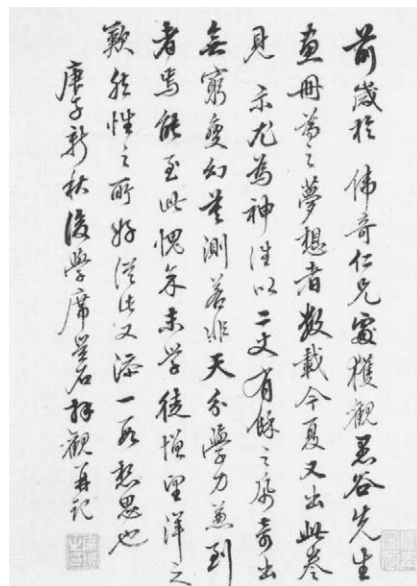 前歲於 偉奇仁兄處獲觀墨谷先生
畫冊為之夢想者數載今夏又出此卷
見 示尤為神往以二丈有餘之紙奇出
無窮變幻莫測若非天分學力兼到
者焉能至此愧余未學徒增望洋之
歎然性之所好從此又添一段愁思也
庚子新秋後學席 拜觀并記